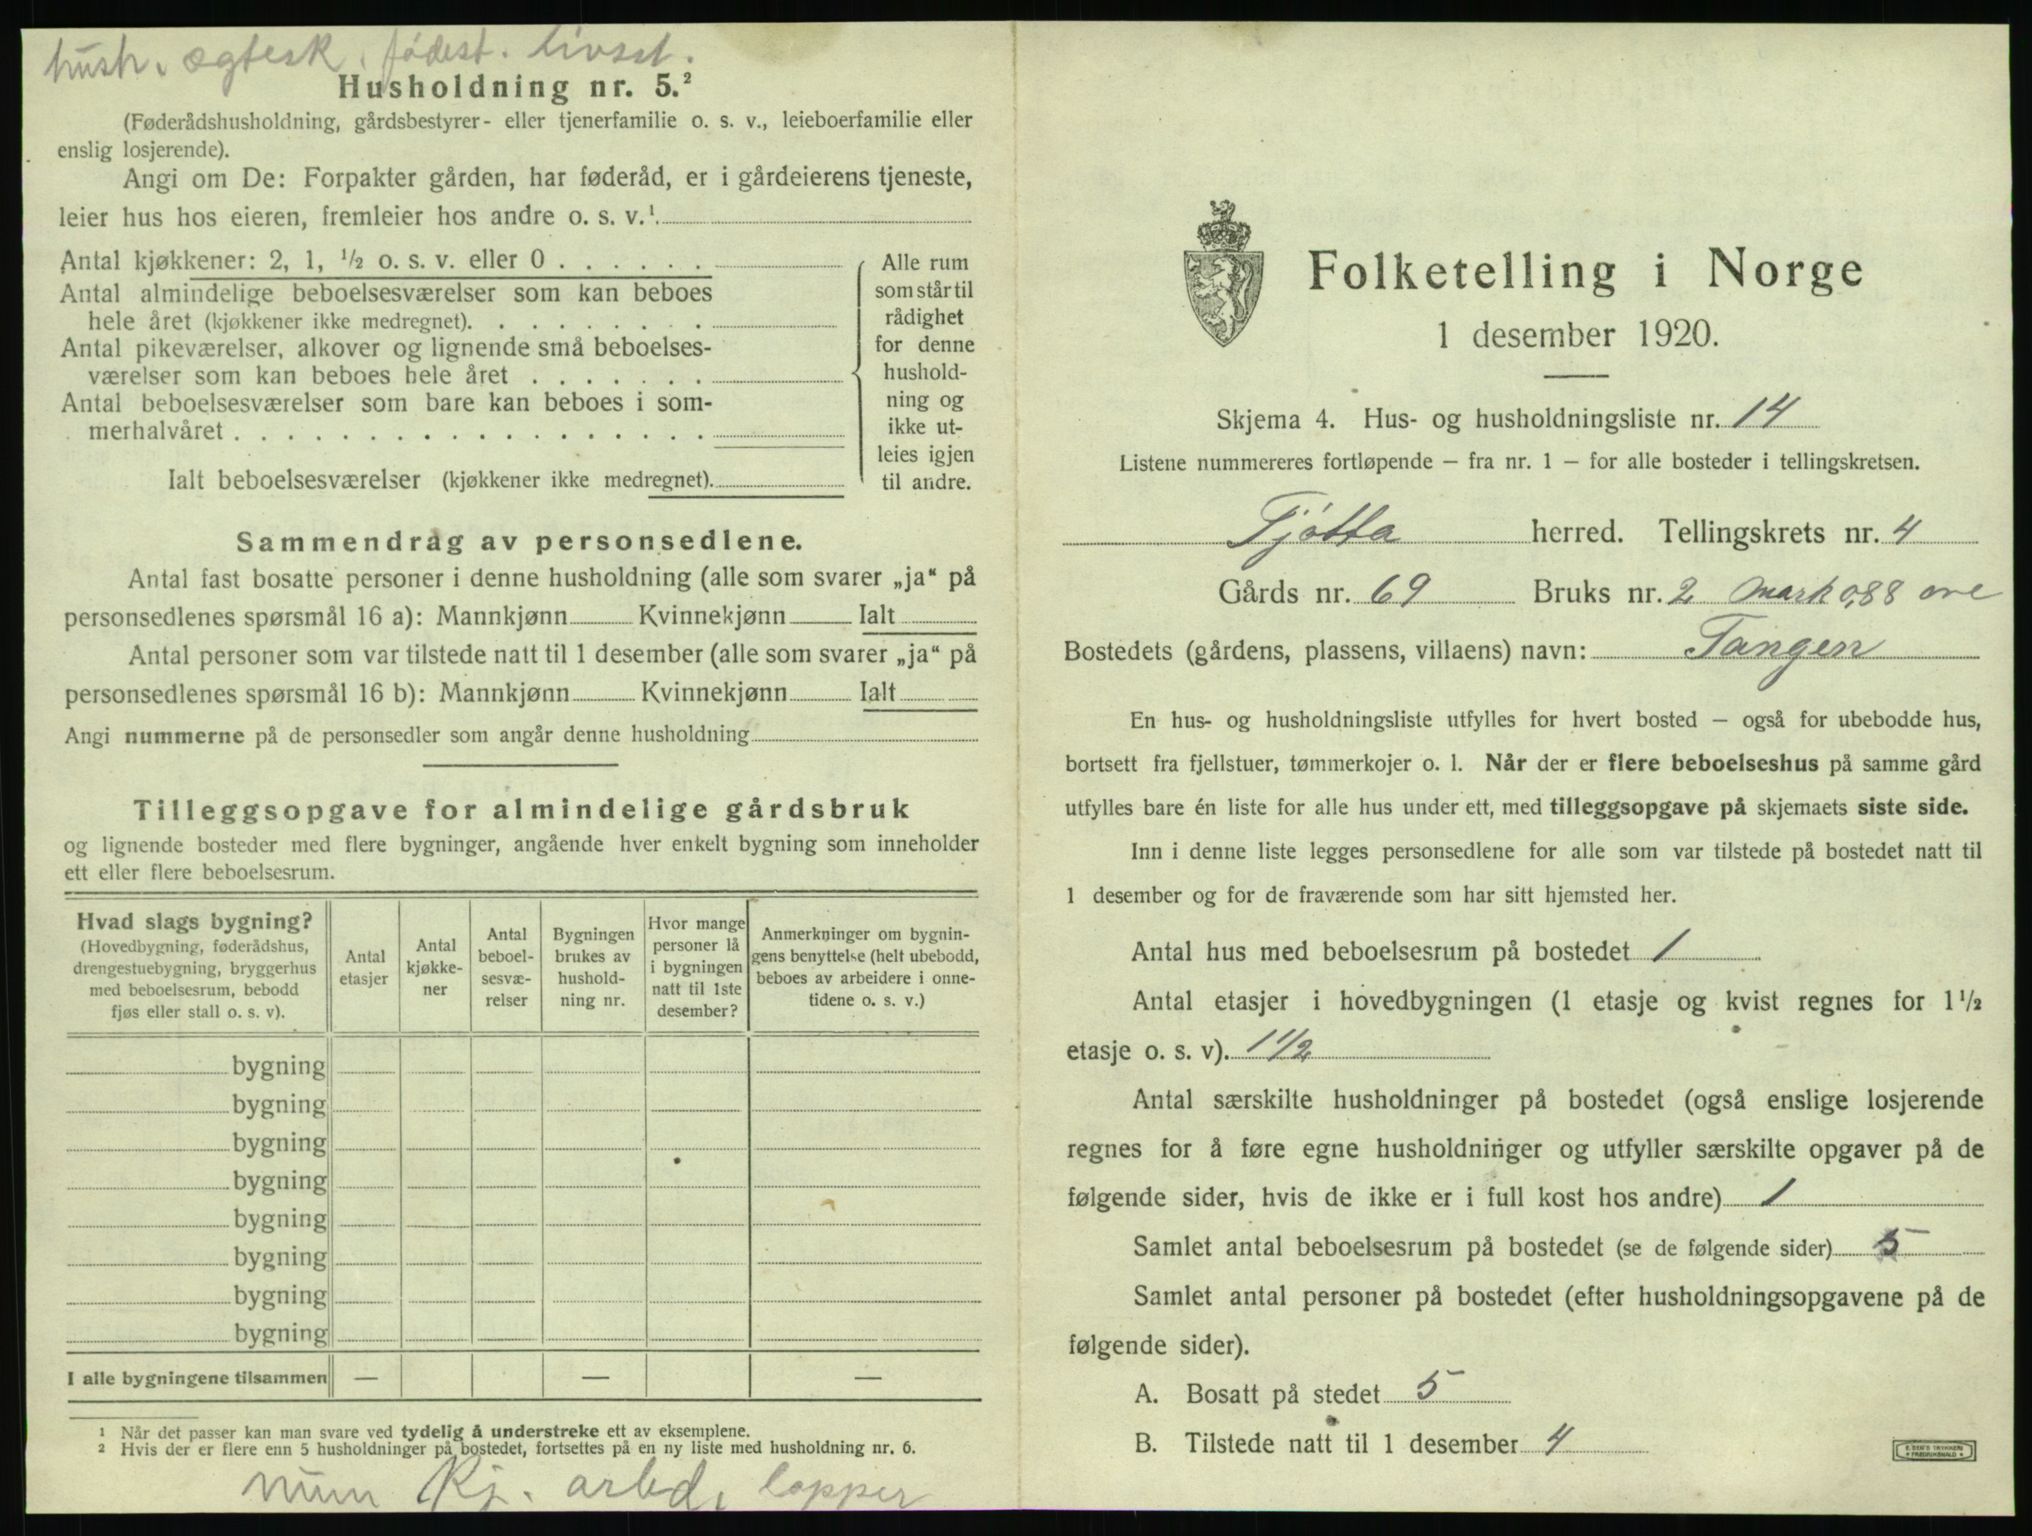 hush. ægtesk. fødest. livsst.
Husholdning nr. 5.²
(Føderådshusholdning, gårdsbestyrer- eller tjenerfamilie o. s. v., leieboerfamilie eller
enslig losjerende).
Angi om De: Forpakter gården, har føderåd, er i gårdeierens tjeneste,
leier hus hos eieren, fremleier hos andre o. s. v.¹
Antal kjøkkener: 2, 1, ½ o. s. v. eller 0 . . . . . .
Antal almindelige beboelsesværelser som kan beboes
hele året (kjøkkener ikke medregnet). . . . . . . . .
Antal pikeværelser, alkover og lignende små beboelses-
værelser som kan beboes hele året . . . . . . .
Antal beboelsesværelser som bare kan beboes i som-
merhalvåret . . . . . . . . . . . . . . . . .
Ialt beboelsesværelser (kjøkkener ikke medregnet).
Alle rum
som står til
rådighet
for denne
hushold-
ning og
ikke ut-
leies igjen
til andre.
Sammendrag av personsedlene.
Antal fast bosatte personer i denne husholdning (alle som svarer „ja“ på
personsedlenes spørsmål 16 a): Mannkjønn Kvinnekjønn Ialt
Antal personer som var tilstede natt til 1 desember (alle som svarer „ja“ på
personsedlenes spørsmål 16 b): Mannkjønn Kvinnekjønn Ialt
Angi nummerne på de personsedler som angår denne husholdning
Tilleggsopgave for almindelige gårdsbruk
og lignende bosteder med flere bygninger, angående hver enkelt bygning som inneholder
ett eller flere beboelsesrum.
Hvad slags bygning?
(Hovedbygning, føderådshus,
drengestuebygning, bryggerhus
med beboelsesrum, bebodd
fjøs eller stall o. s. v).
Antal
etasjer
Antal
kjøkke-
ner
Antal
beboel-
sesvæ-
relser
Bygningen
brukes av
hushold-
ning nr.
Hvor mange
personer lå
i bygningen
natt til 1ste
desember?
Anmerkninger om bygnin-
gens benyttelse (helt ubebodd,
beboes av arbeidere i onne-
tidene o. s. v.)
bygning
bygning
bygning
bygning
bygning
bygning
bygning
bygning
I alle bygningene tilsammen — — —
¹ Når det passer kan man svare ved tydelig å understreke ett av eksemplene.
² Hvis der er flere enn 5 husholdninger på bostedet, fortsettes på en ny liste med husholdning nr. 6.
num Kj. arbd, lapper
Folketelling i Norge
1 desember 1920.
Skjema 4. Hus- og husholdningsliste nr. 14
Listene nummereres fortløpende – fra nr. 1 – for alle bosteder i tellingskretsen.
Tjøtta herred. Tellingskrets nr. 4
Gårds nr. 69 Bruks nr. 2 mark 0,88 øre
Bostedets (gårdens, plassens, villaens) navn: Tangen
En hus- og husholdningsliste utfylles for hvert bosted – også for ubebodde hus,
bortsett fra fjellstuer, tømmerkojer o. l. Når der er flere beboelseshus på samme gård
utfylles bare én liste for alle hus under ett, med tilleggsopgave på skjemaets siste side.
Inn i denne liste legges personsedlene for alle som var tilstede på bostedet natt til
1 desember og for de fraværende som har sitt hjemsted her.
Antal hus med beboelsesrum på bostedet 1
Antal etasjer i hovedbygningen (1 etasje og kvist regnes for 1½
etasje o. s. v). 1 1/2
Antal særskilte husholdninger på bostedet (også enslige losjerende
regnes for å føre egne husholdninger og utfyller særskilte opgaver på de
følgende sider, hvis de ikke er i full kost hos andre) 1
Samlet antal beboelsesrum på bostedet (se de følgende sider) 5
Samlet antal personer på bostedet (efter husholdningsopgavene på de
følgende sider).
A. Bosatt på stedet 5
B. Tilstede natt til 1 desember 4